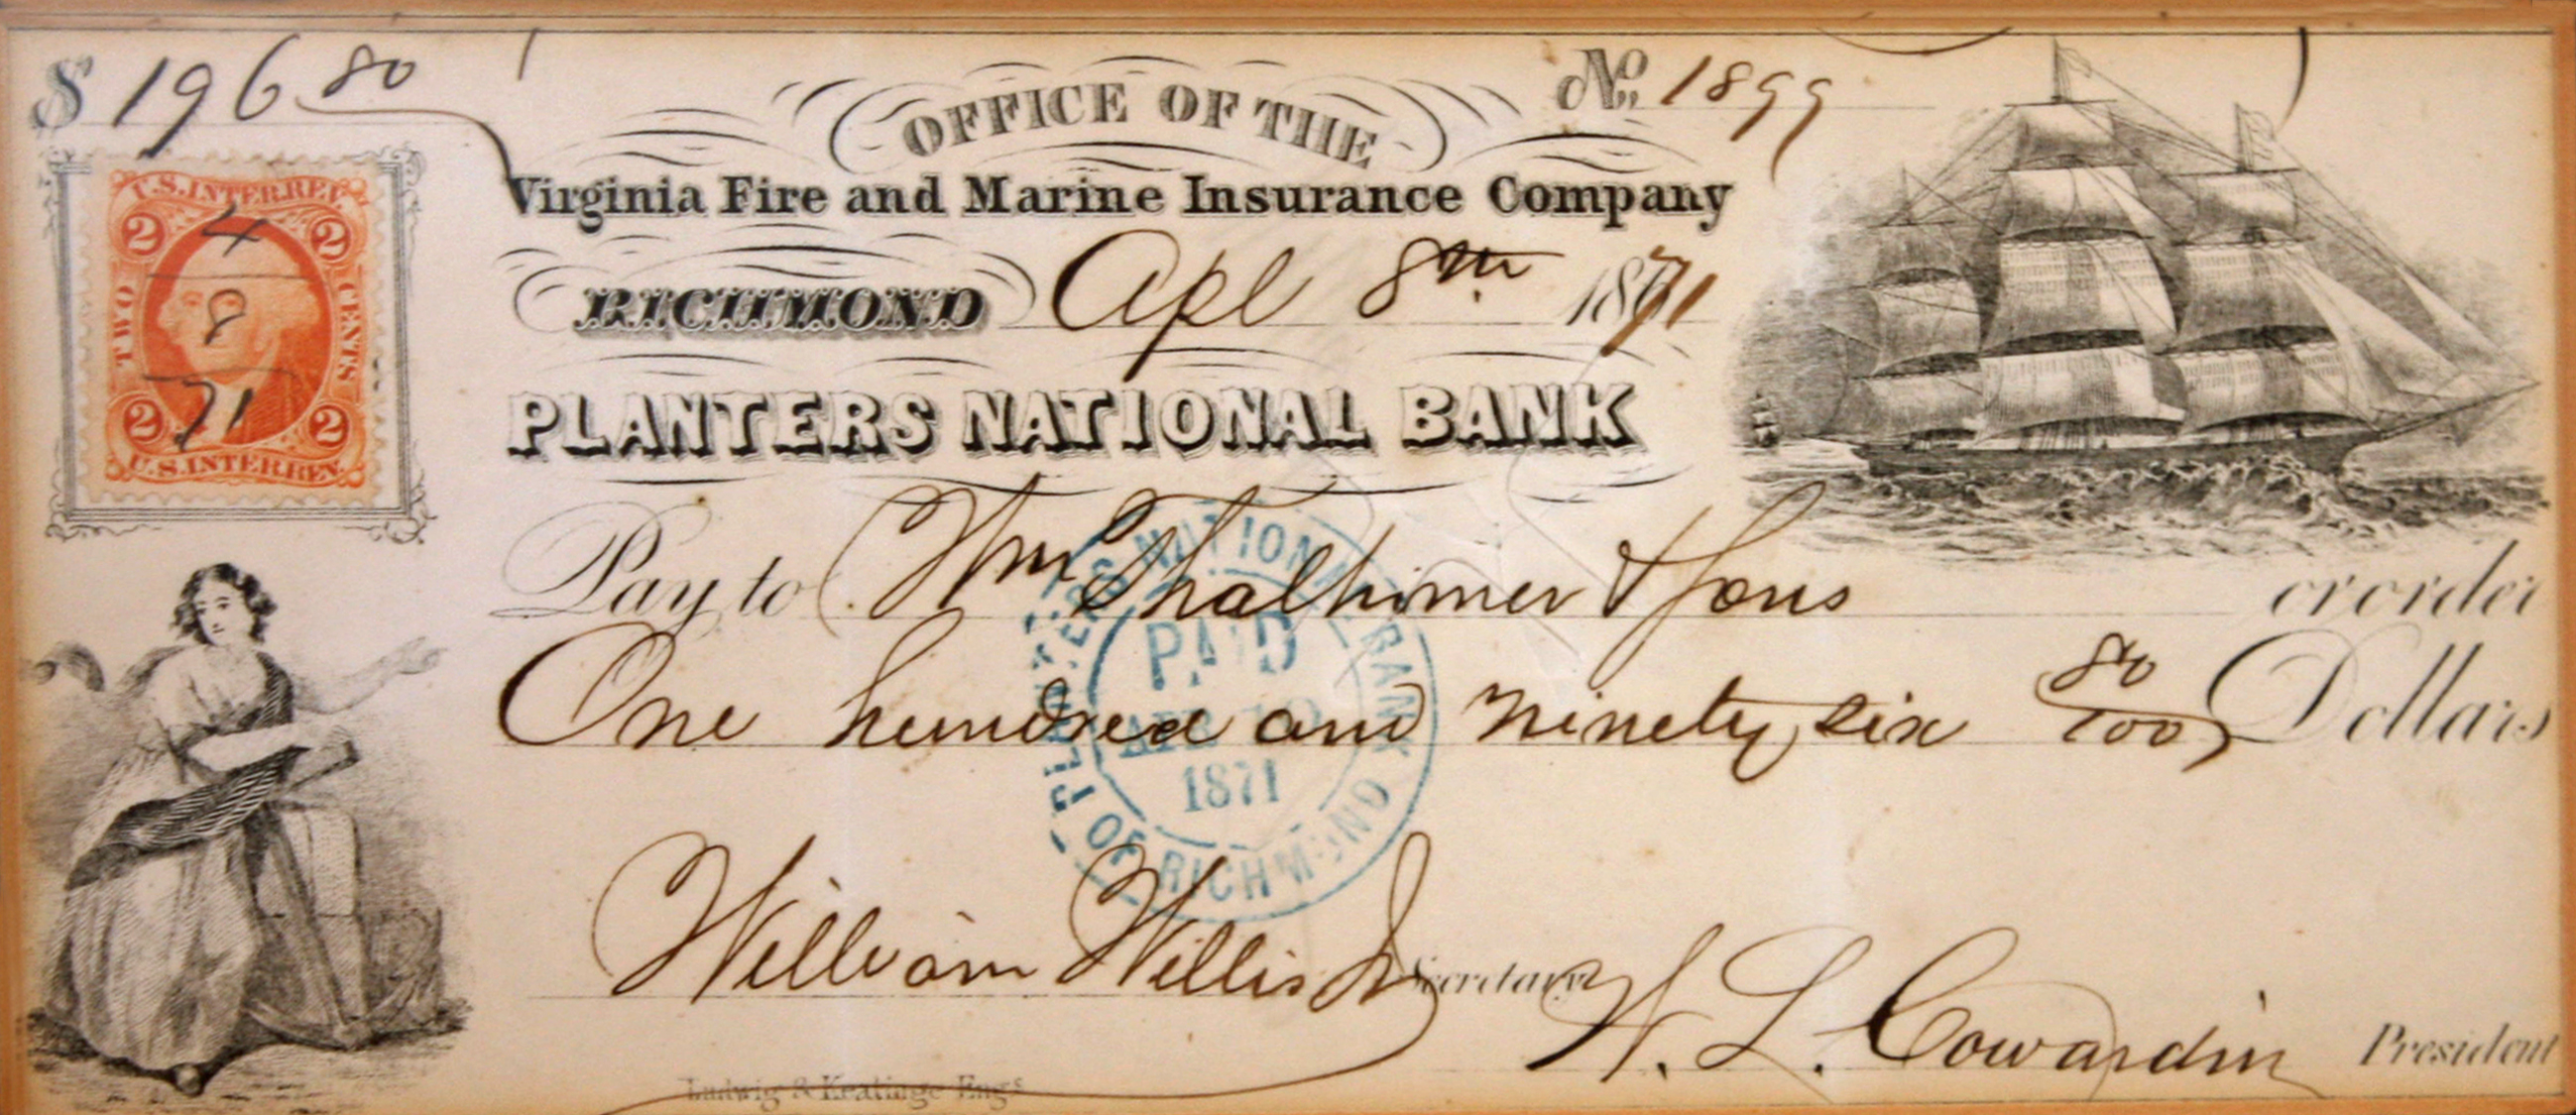 $ 196 80
No. 1899
OFFICE OF THE
Virginia Fire and Marine Insurance Company
RICHMOND Apl 8th 1871
PLANTERS NATIONAL BANK
U.S. INTER. REV.
2 4 2
TWO 8 CENTS
2 71 2
U.S. INTER. REV.
Pay to Wm Thalhimer & Sons or order
One hundred and ninety six 80/100 Dollars
PLANTERS NATIONAL BANK
PAID
APR 10
1871
OF RICHMOND
William Willis Jr Secretary
W. L. Cowardin President
Ludwig & Keatinge Engs